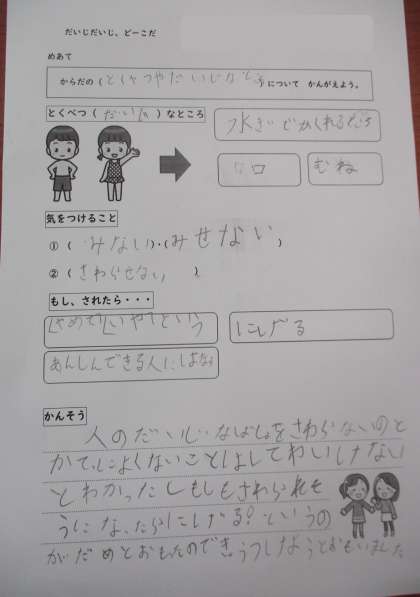 だいじだいじ、どーこだ
めあて
からだの(とくべつやだいじなところ)について かんがえよう。
とくべつ(だいじ)なところ
水ぎでかくれるところ
口
むね
気をつけること
①(みない)・(みせない)
②(さわらせない)
もし、されたら・・・
「やめて」「いや」という
にげる
あんしんできる人にはなす
かんそう
人のだいじなばしょをさわらないのと
かってによくないことはしてわいけない
とわかったしもしもさわられそ
うになったらにげる!というの
がだめとおもったのできをつけようとおもいました